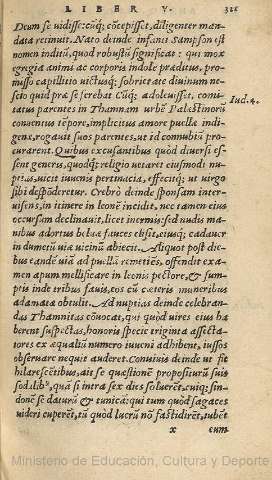 LIBER V. 321
Deum se uidisse: cūq; cōcepisset, diligenter man-
data retinuit. Nato deinde infanti Sampson est
nomen inditū, quod robustū significat: qui mox
egregia animi ac corporis indole præditus, pro-
misso capillitio uictusq; sobrietate diuinum ne-
scio quid præ se ferebat Cūq; adoleuisset, comi-
tatus parentes in Thamnam urbē Palæstinorū
Iud.4.
conuentus tēpore, implicitus amore puellæ indi-
genæ, rogauit suos parentes, ut id connubiū pro-
curarent. Quibus excusantibus quòd diuersi es-
sent generis, quodq; religio uetaret eiusmodi nu-
ptias, uicit iuuenis pertinacia, effecitq; ut uirgo
sibi despōderetur. Crebrò deinde sponsam inter-
uisens, in itinere in leonē incidit, nec tamen eius
occursum declinauit, licet inermis: sed nudis ma-
nibus adortus beluæ fauces elisit, eiusq; cadauer
in dumetū uiæ uicinū abiecit. Aliquot post die-
bus eandē uiā ad puellā remetiēs, offendit exa-
men apum mellificare in leonis pectore, & sum-
ptis inde tribus fauis, eos cū cæteris muneribus
adamatæ obtulit. Ad nuptias deinde celebran-
das Thamnitas cōuocat, qui quòd uires eius ha
berent suspectas, honoris specie triginta assecta-
tores ex æqualiū numero iuueni adhibent, iussos
obseruare nequid auderet. Conuiuis deinde ut fit
hilarescētibus, ait se quæstionē propositurū suis
sodalib⁹, quā si intra sex dies soluerēt, cuiq; sin-
donē se daturū & tunicā: qui tum quòd sagaces
uideri cuperēt, tū quòd lucrū nō fastidirēt, iubēt
x cum
Ministerio de Educación, Cultura y Deporte